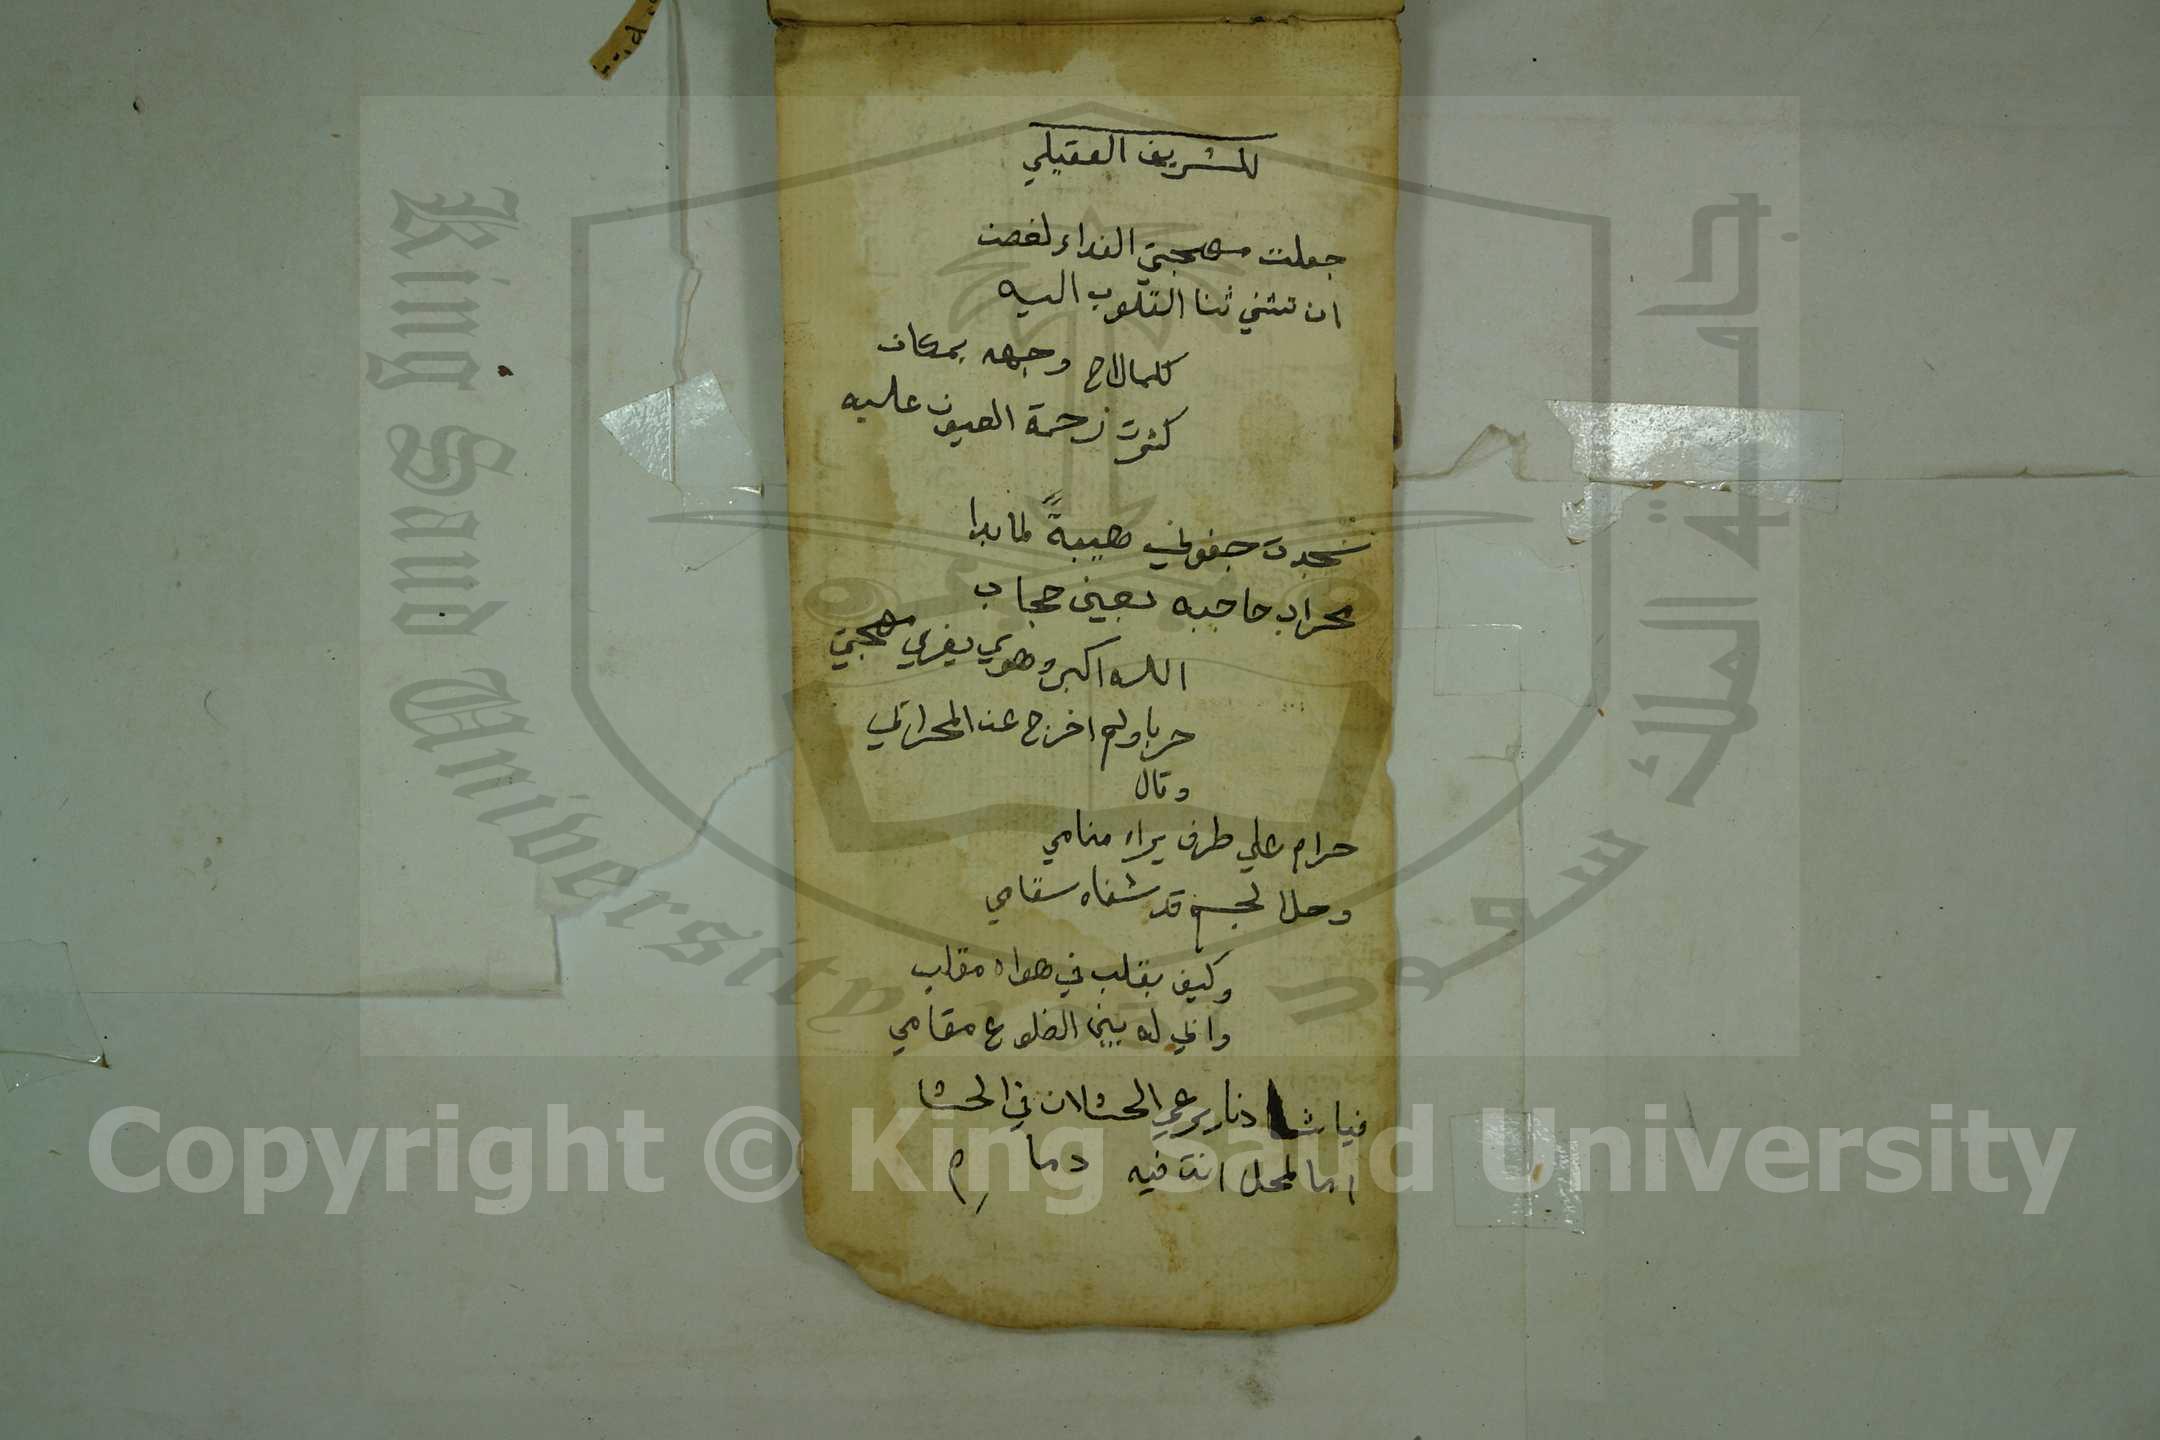 للشريف العقيلي
جعلت مهجتي الفداء لغصن
ان تثنى ثنا القلوب اليه
كلما لاح وجهه بمكان
كثرت زحمة العيون عليه
سجدت جفوني هيبةً لما بدا
محراب حاجبه بعين حجاب
الله اكبر وهو يفري مهجتي
حربا ولم اخرج عن المحراب
وقال
حرام على طرف يراه منامي
وحل لجسم قد شفاه سقامي
وكيف بقلب في هواه مقلب
واني له بين الضلوع مقامي
فيا شادنا يرعى الحشا لان في الحشا
اما لمحل انت فيه دمام
King Saud University
جامعة الملك سعود
1957
Copyright © King Saud University